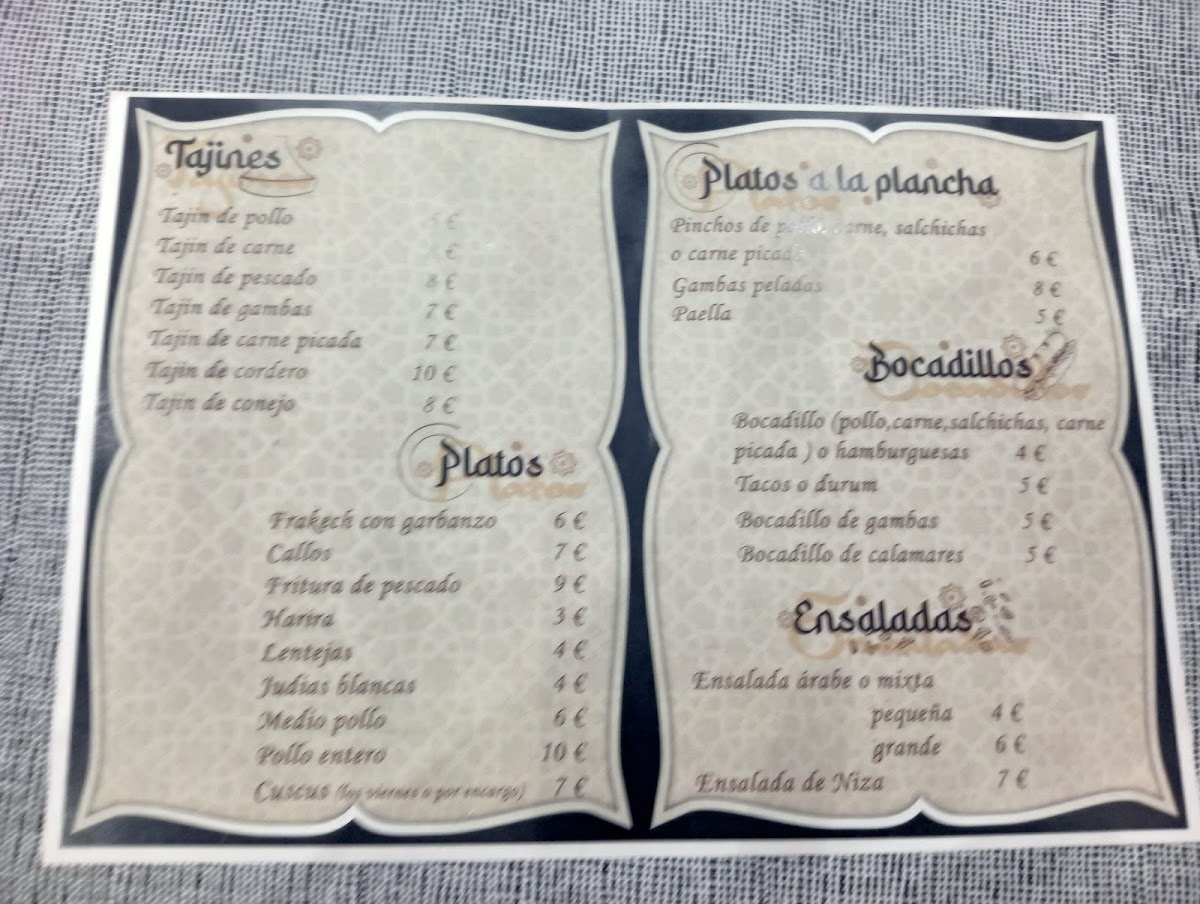 Tajines
Tajin de pollo €
Tajin de carne €
Tajin de pescado 8 €
Tajin de gambas 7 €
Tajin de carne picada 7 €
Tajin de cordero 10 €
Tajin de conejo 8 €
Platos
Frakech con garbanzo 6 €
Callos 7 €
Fritura de pescado 9 €
Harira 3 €
Lentejas 4 €
Judias blancas 4 €
Medio pollo 6 €
Pollo entero 10 €
Cuscus (los viernes o por encargo) 7 €
Platos a la plancha
Pinchos de pollo, carne, salchichas
o carne picada 6 €
Gambas peladas 8 €
Paella 5 €
Bocadillos
Bocadillo (pollo,carne,salchichas, carne
picada ) o hamburguesas 4 €
Tacos o durum 5 €
Bocadillo de gambas 5 €
Bocadillo de calamares 5 €
Ensaladas
Ensalada árabe o mixta
pequeña 4 €
grande 6 €
Ensalada de Niza 7 €